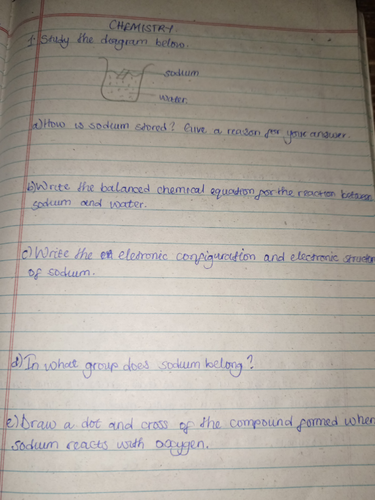 CHEMISTRY.
1. Study the diagram below.
sodium
water
a) How is sodium stored? Give a reason for your answer.
b) Write the balanced chemical equation for the reaction between
sodium and water.
c) Write the eletronic configuration and electronic structure
of sodium.
d) In what group does sodium belong?
e) Draw a dot and cross of the compound formed when
sodium reacts with oxygen.